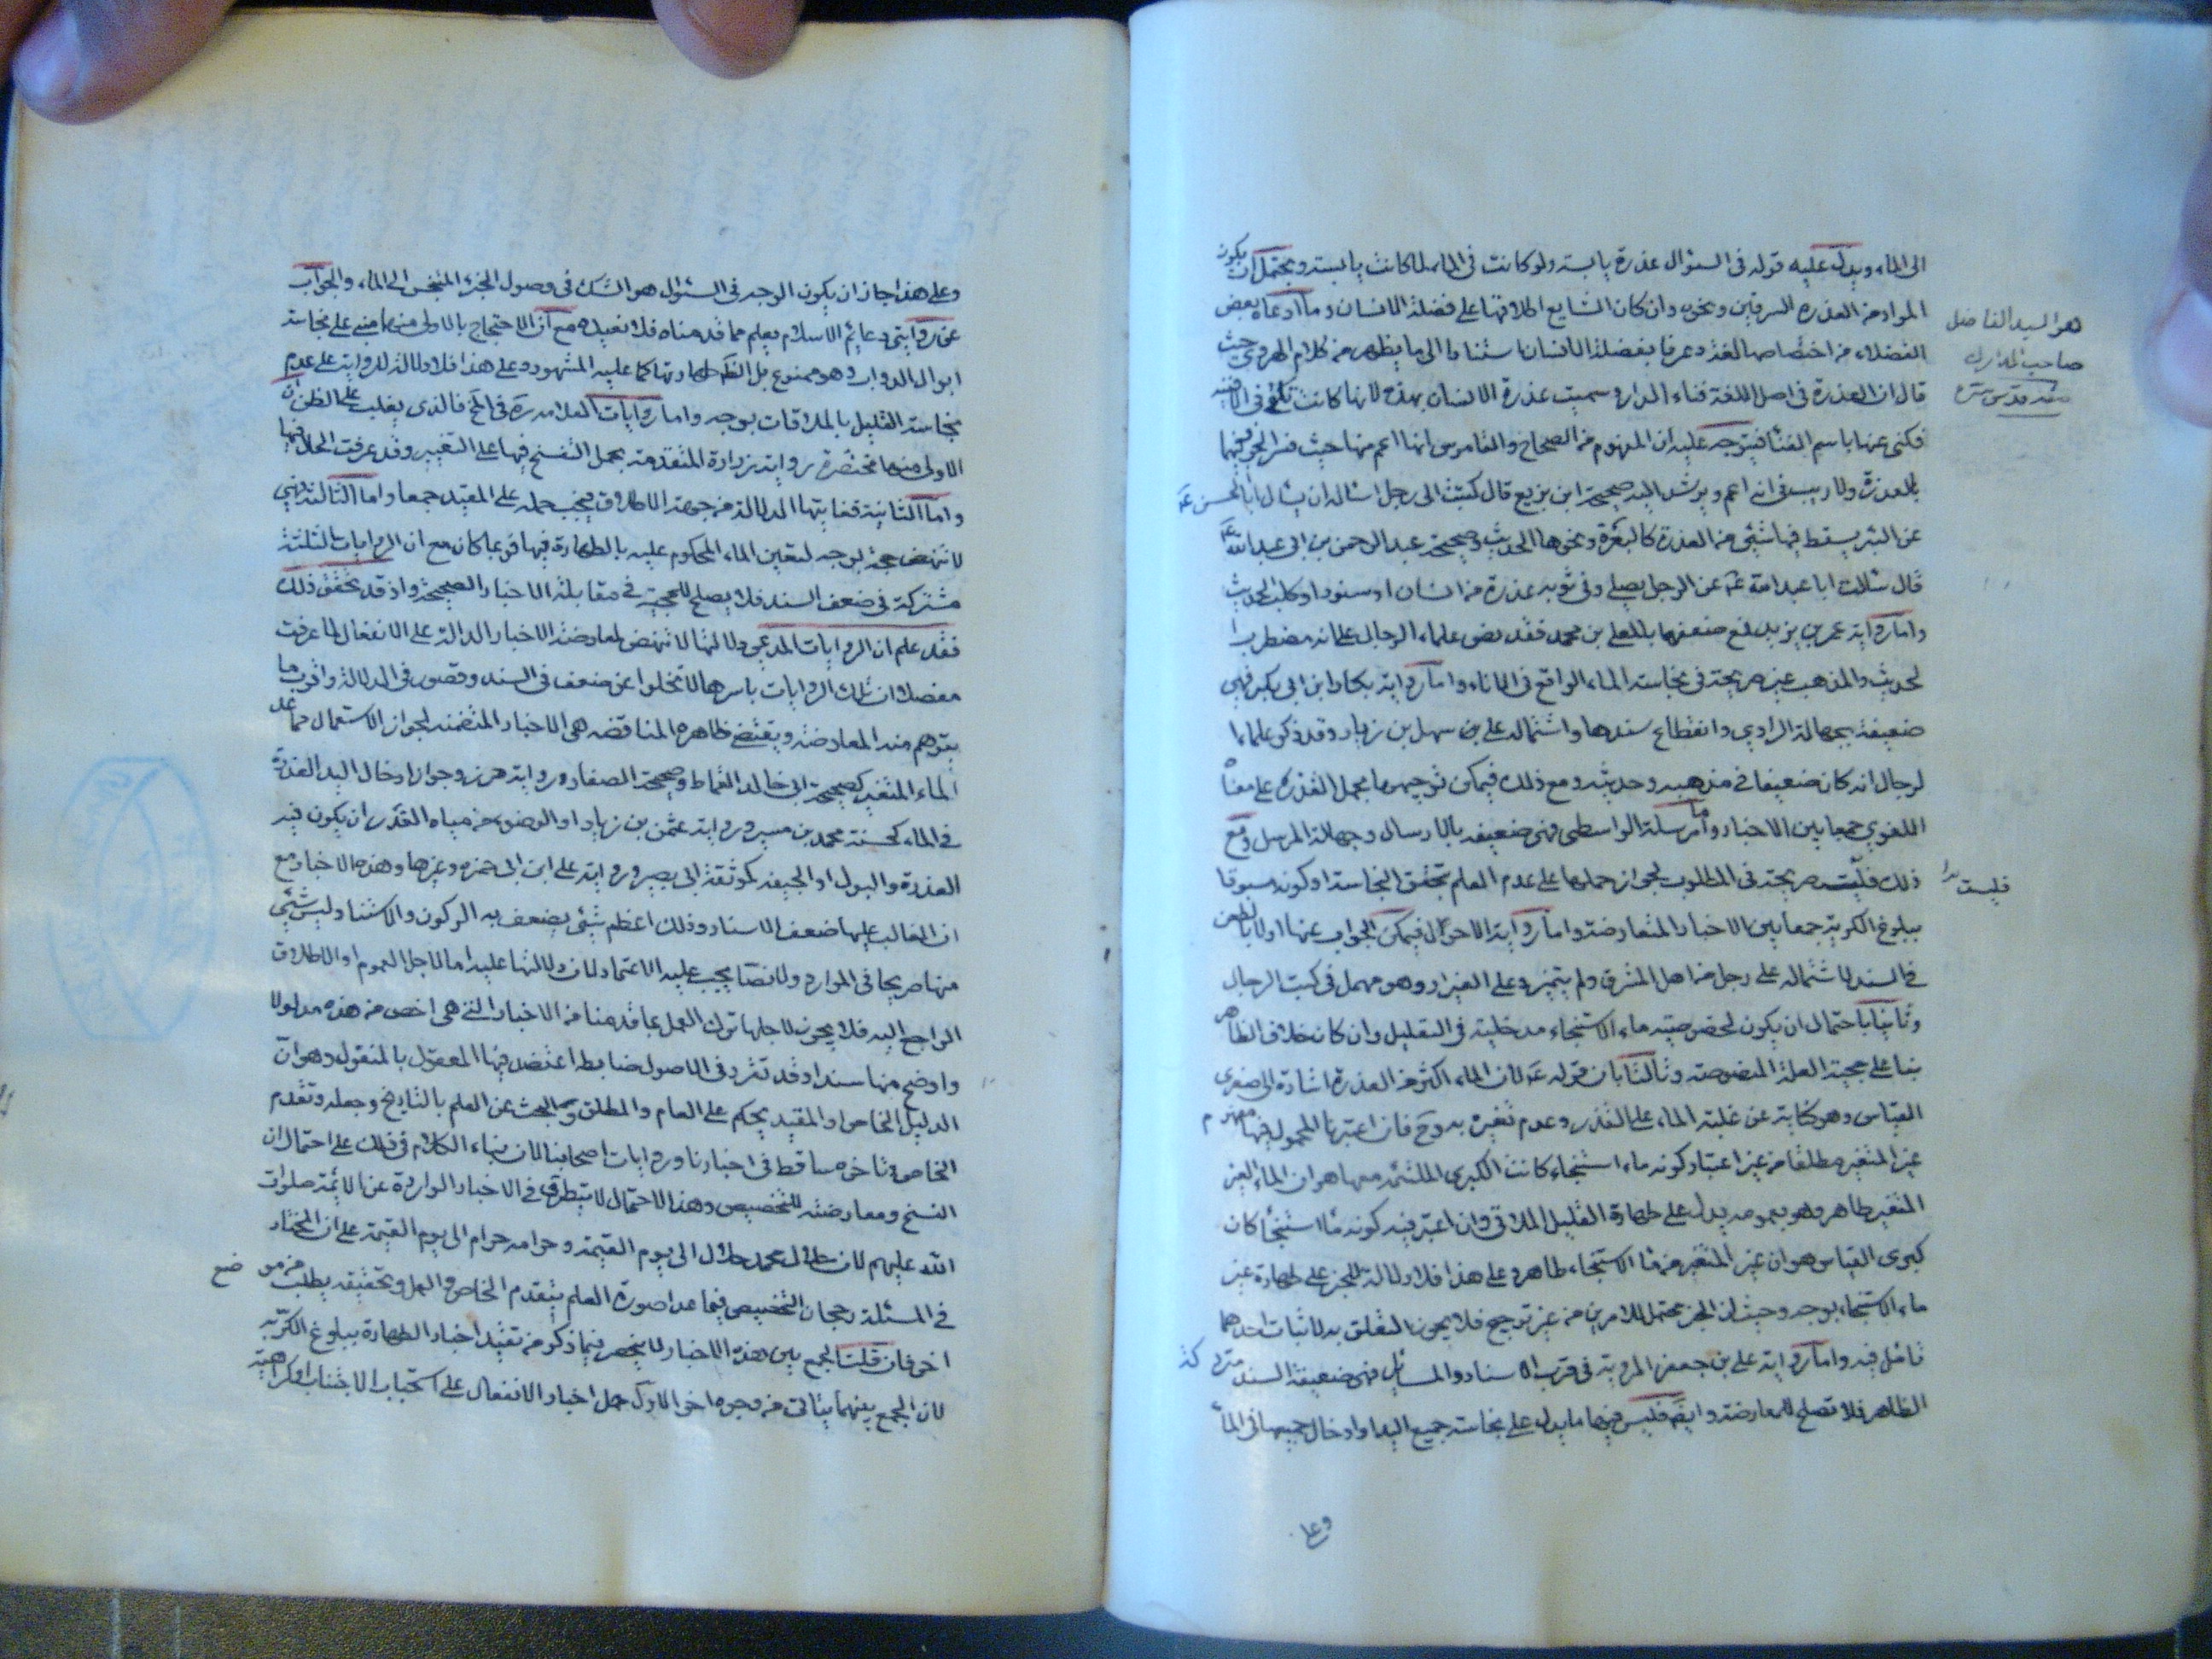 الى الماء ويدل عليه قوله فى السؤال عذرة يابسة ولو كانت فى الماء لما كانت يابسة ويحتمل ان يكون
المراد من العذرة السرقين ونحوه وان كان الشايع اطلاقها على فضلة الانسان وما ادعاه بعض
الفضلاء من اختصاصها لغة وعرفا بفضلة الانسان استنادا الى ما يظهر من كلام الهروى حيث
قال ان العذرة فى اصل اللغة فناء الدار وسميت عذرة الانسان بهذه لانها كانت تلقى فى الافنية
فكنى عنها باسم الفناء فيتوجه عليه ان المفهوم من الصحاح والقاموس انها اعم منها حيث فسر الخرء فيهما
بالعذرة ولا ريب فى انه اعم ويرشد اليه صحيحة ابن بزيع قال كتبت الى رجل اساله ان يسال ابا الحسن ع
عن البئر يسقط فيها شئ من العذرة كالبعرة ونحوها الحديث وصحيحة عبد الرحمن بن ابى عبد الله
قال سئلت ابا عبد الله ع عن الرجل يصلى وفى ثوبه عذرة من انسان او سنور او كلب الحديث
واما رواية عمر بن يزيد فمع ضعفها بالمعلى بن محمد فقد نص علماء الرجال على انه مضطرب ا
لحديث والمذهب غير صريحة فى نجاسة الماء الواقع فى الاناء واما رواية بكار ابن ابى بكر فهى
ضعيفة بجهالة الراوى وانقطاع سندها واشتماله على بن سهل بن زياد وقد ذكر علماء ا
لرجال انه كان ضعيفا فى مذهبه وحديثه ومع ذلك فيمكن توجيهها بحمل القذر على معناه
اللغوى جمعا بين الاخبار واما مرسلة الواسطى فهى ضعيفه بالارسال وجهالة المرسل ومع
ذلك فليست صريحة فى المطلوب لجواز حملها على عدم العلم بتحقق النجاسة او كونه مسبوقا
ببلوغ الكرية جمعا بين الاخبار المتعارضة واما رواية الاحول فيمكن الجواب عنها اولا بالطعن
فى السند لاشتماله على رجل من اهل المشرق ولم يتميز وعلى العيزار وهو مهمل فى كتب الرجال
وثانيا باحتمال ان يكون لخصوصية ماء الاستنجاء مدخلية فى التقليل وان كان خلاف الظاهر
بنا على حجية العلة المنصوصة وثالثا بان قوله ع لان الماء اكثر من العذرة اشارة الى صغرى
القياس وهو كناية عن غلبة الماء على القذر وعدم تغيره به وح فان اعتبرنا المحمول فيها
غير المتغير مطلقا من غير اعتبار كونه ماء استنجاء كانت الكبرى الملتئمة معها هو ان الماء الغير
المتغير طاهر وهو بعمومه يدل على طهارة القليل الملاقى وان اعتبر فيه كونه ماء استنجاء كان
كبرى القياس هو ان غير المتغير من ماء الاستنجاء طاهر وعلى هذا فلا دلالة للخبر على طهارة غير
ماء الاستنجاء بوجه وحيث ان الخبر محتمل للامرين من غير ترجيح فلا يجوز التعلق به لاثبات احدهما
تامل فيه واما رواية على بن جعفر المروية فى قرب الاسناد والمسائل فهى ضعيفة السند
الظاهر فلا تصلح للمعارضة وايضا فليس فيها ما يدل على نجاسة جميع اليد او ادخال جميعها فى الماء
هو السيد الفاضل
صاحب المدارك
منه قدس سره
فليست
وعلى
وعلى هذا جاز ان يكون الوجه فى السئوال هو الشك فى وصول الجزء المتنجس الى الماء والجواب
عن روايتى دعائم الاسلام يعلم مما قدمناه فلا نعيده مع ان الاحتجاج بالاولى منهما مبنى على نجاسة
ابوال الدواب وهو ممنوع بل الظ طهارتها كما عليه المشهور وعلى هذا فلا دلالة للرواية على عدم
نجاسة القليل بالملاقات بوجه واما روايات العلامه ره فى المخ فالذى يغلب على الظن ان
الاولى منها مختصرة رواية زرارة المتقدمة بحمل التفسخ فيها على التغيير وقد عرفت الحال فيها
واما الثانية فغايتها الدلالة من جهة الاطلاق فيجب حمله على المقيد جمعا واما الثالثة فهى
لا تنهض حجة بوجه لتعين الماء المحكوم عليه بالطهارة فيها فربما كان مع ان الروايات الثلثة
مشتركة فى ضعف السند فلا يصلح للحجية فى مقابلة الاخبار الصحيحة واذ قد تحقق ذلك
فقد علم ان الروايات المدعى دلالتها لا تنهض لمعارضة الاخبار الدالة على الانفعال لما عرفت
مفصلا ان تلك الروايات باسرها لا تخلوا عن ضعف فى السند وقصور فى الدلالة واقرب ما
يتوهم منه المعارضة ويقتضى ظاهره المناقضه هى الاخبار المتضمنه لجواز الاستعمال مما عدا
الماء المتغير كصحيحة ابى خالد القماط وصحيحة الصفار ورواية حريز وجواز ادخال اليد القذرة
فى الماء كحسنة محمد بن ميسر ورواية عثمن بن زياد او الوضوء من مياه الغدران يكون فيه
العذرة والبول او الجيفه كموثقة ابى بصير ورواية على ابن ابى حمزه وغيرها وهذه الاخبار مع
ان الغالب عليها ضعف الاسناد وذلك اعظم شئى يضعف به الركون والاستناد ليس شئى
منها صريحا فى المراد ولا نصا يجب عليه الاعتماد لان دلالتها عليه اما لاجل العموم او الاطلاق
الراجع اليه فلا يجوز لاجلها ترك العمل بما قدمنا من الاخبار التى هى اخص من هذه مدلولا
واوضح منها سندا وقد تقرر فى الاصول ضابطه اعتضد فيها المعقول بالمنقول وهو ان
الدليل الخاص او المقيد يحكم على العام والمطلق والبحث عن العلم بالتاريخ وجهله وتقدم
الخاص وتاخره ساقط فى اخبارنا وروايات اصحابنا لان بناء الكلام فى ذلك على احتمال ان
النسخ ومعارضته للتخصيص وهذا الاحتمال لا يتطرق فى الاخبار الواردة عن الائمة صلوات
الله عليهم لان حلال محمد حلال الى يوم القيمة وحرامه حرام الى يوم القيمة على ان المختار
فى المسئلة رجحان التخصيص فيما عدا صورة العلم بتقدم الخاص والعمل وتحقيقه يطلب من موضع
اخر فان قلت الجمع بين هذه الاخبار لا ينحصر فيما ذكر من تقييد اخبار الطهارة ببلوغ الكرية
لان الجمع بينهما يتاتى من وجوه اخر الاول حمل اخبار الانفعال على استحباب الاجتناب او كراهية